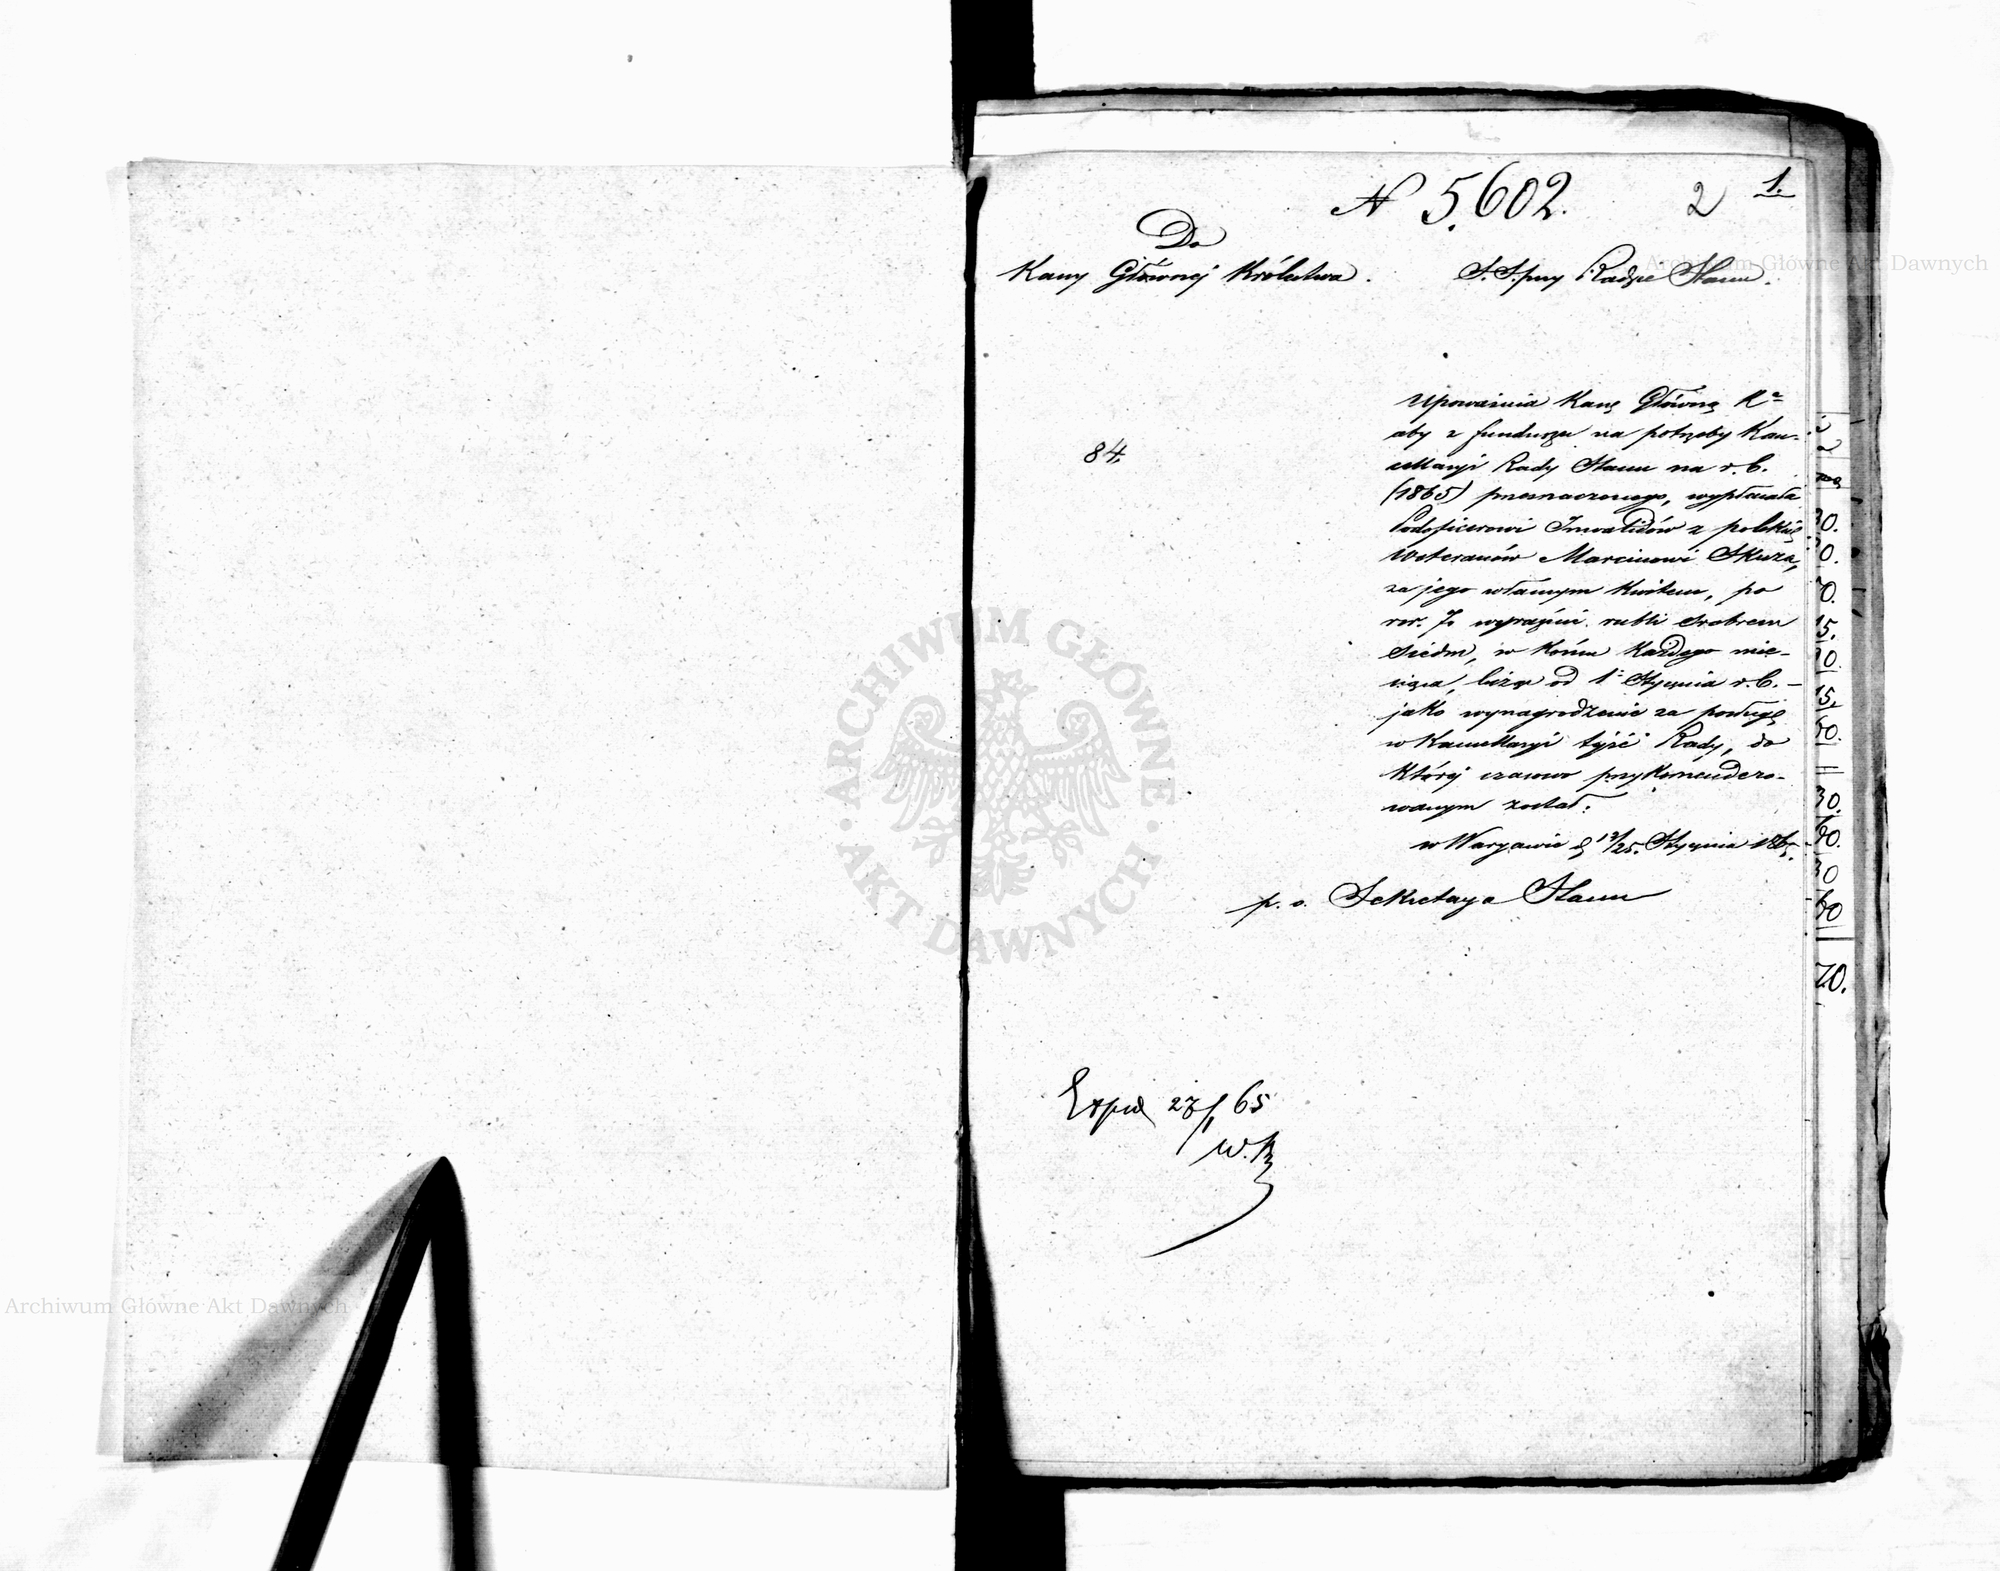 N 5602.
2
1.
Do
Kassy Głównej Królestwa.
S. S. przy Radzie Stanu.
84.
Upoważnia Kassę Główną Kª
aby z funduszu na potrzeby Kan-
cellaryi Rady Stanu na r. b.
(1865) przeznaczonego, wypłacała
Podoficerowi Inwalidów z polskich
Weteranów Marcinowi Skuza,
za jego własnym kwitem, po
rsr. 7. wyraźnie rubli srebrem
siedm, w końcu każdego mie-
siąca, licząc od 1º Stycznia r. b. —
jako wynagrodzenie za posługę
w Kancellaryi tejże Rady, do
której czasowo przykomendero-
wanym został.
w Warszawie d. 13/25. Stycznia 1865.
p. o. Sekretarza Stanu
Exped 27/1 65
W. R
30.
20.
70.
15.
10.
15.
60.
30.
60.
30
60
70.
ARCHIWUM GŁÓWNE
AKT DAWNYCH
Archiwum Główne Akt Dawnych
Archiwum Główne Akt Dawnych